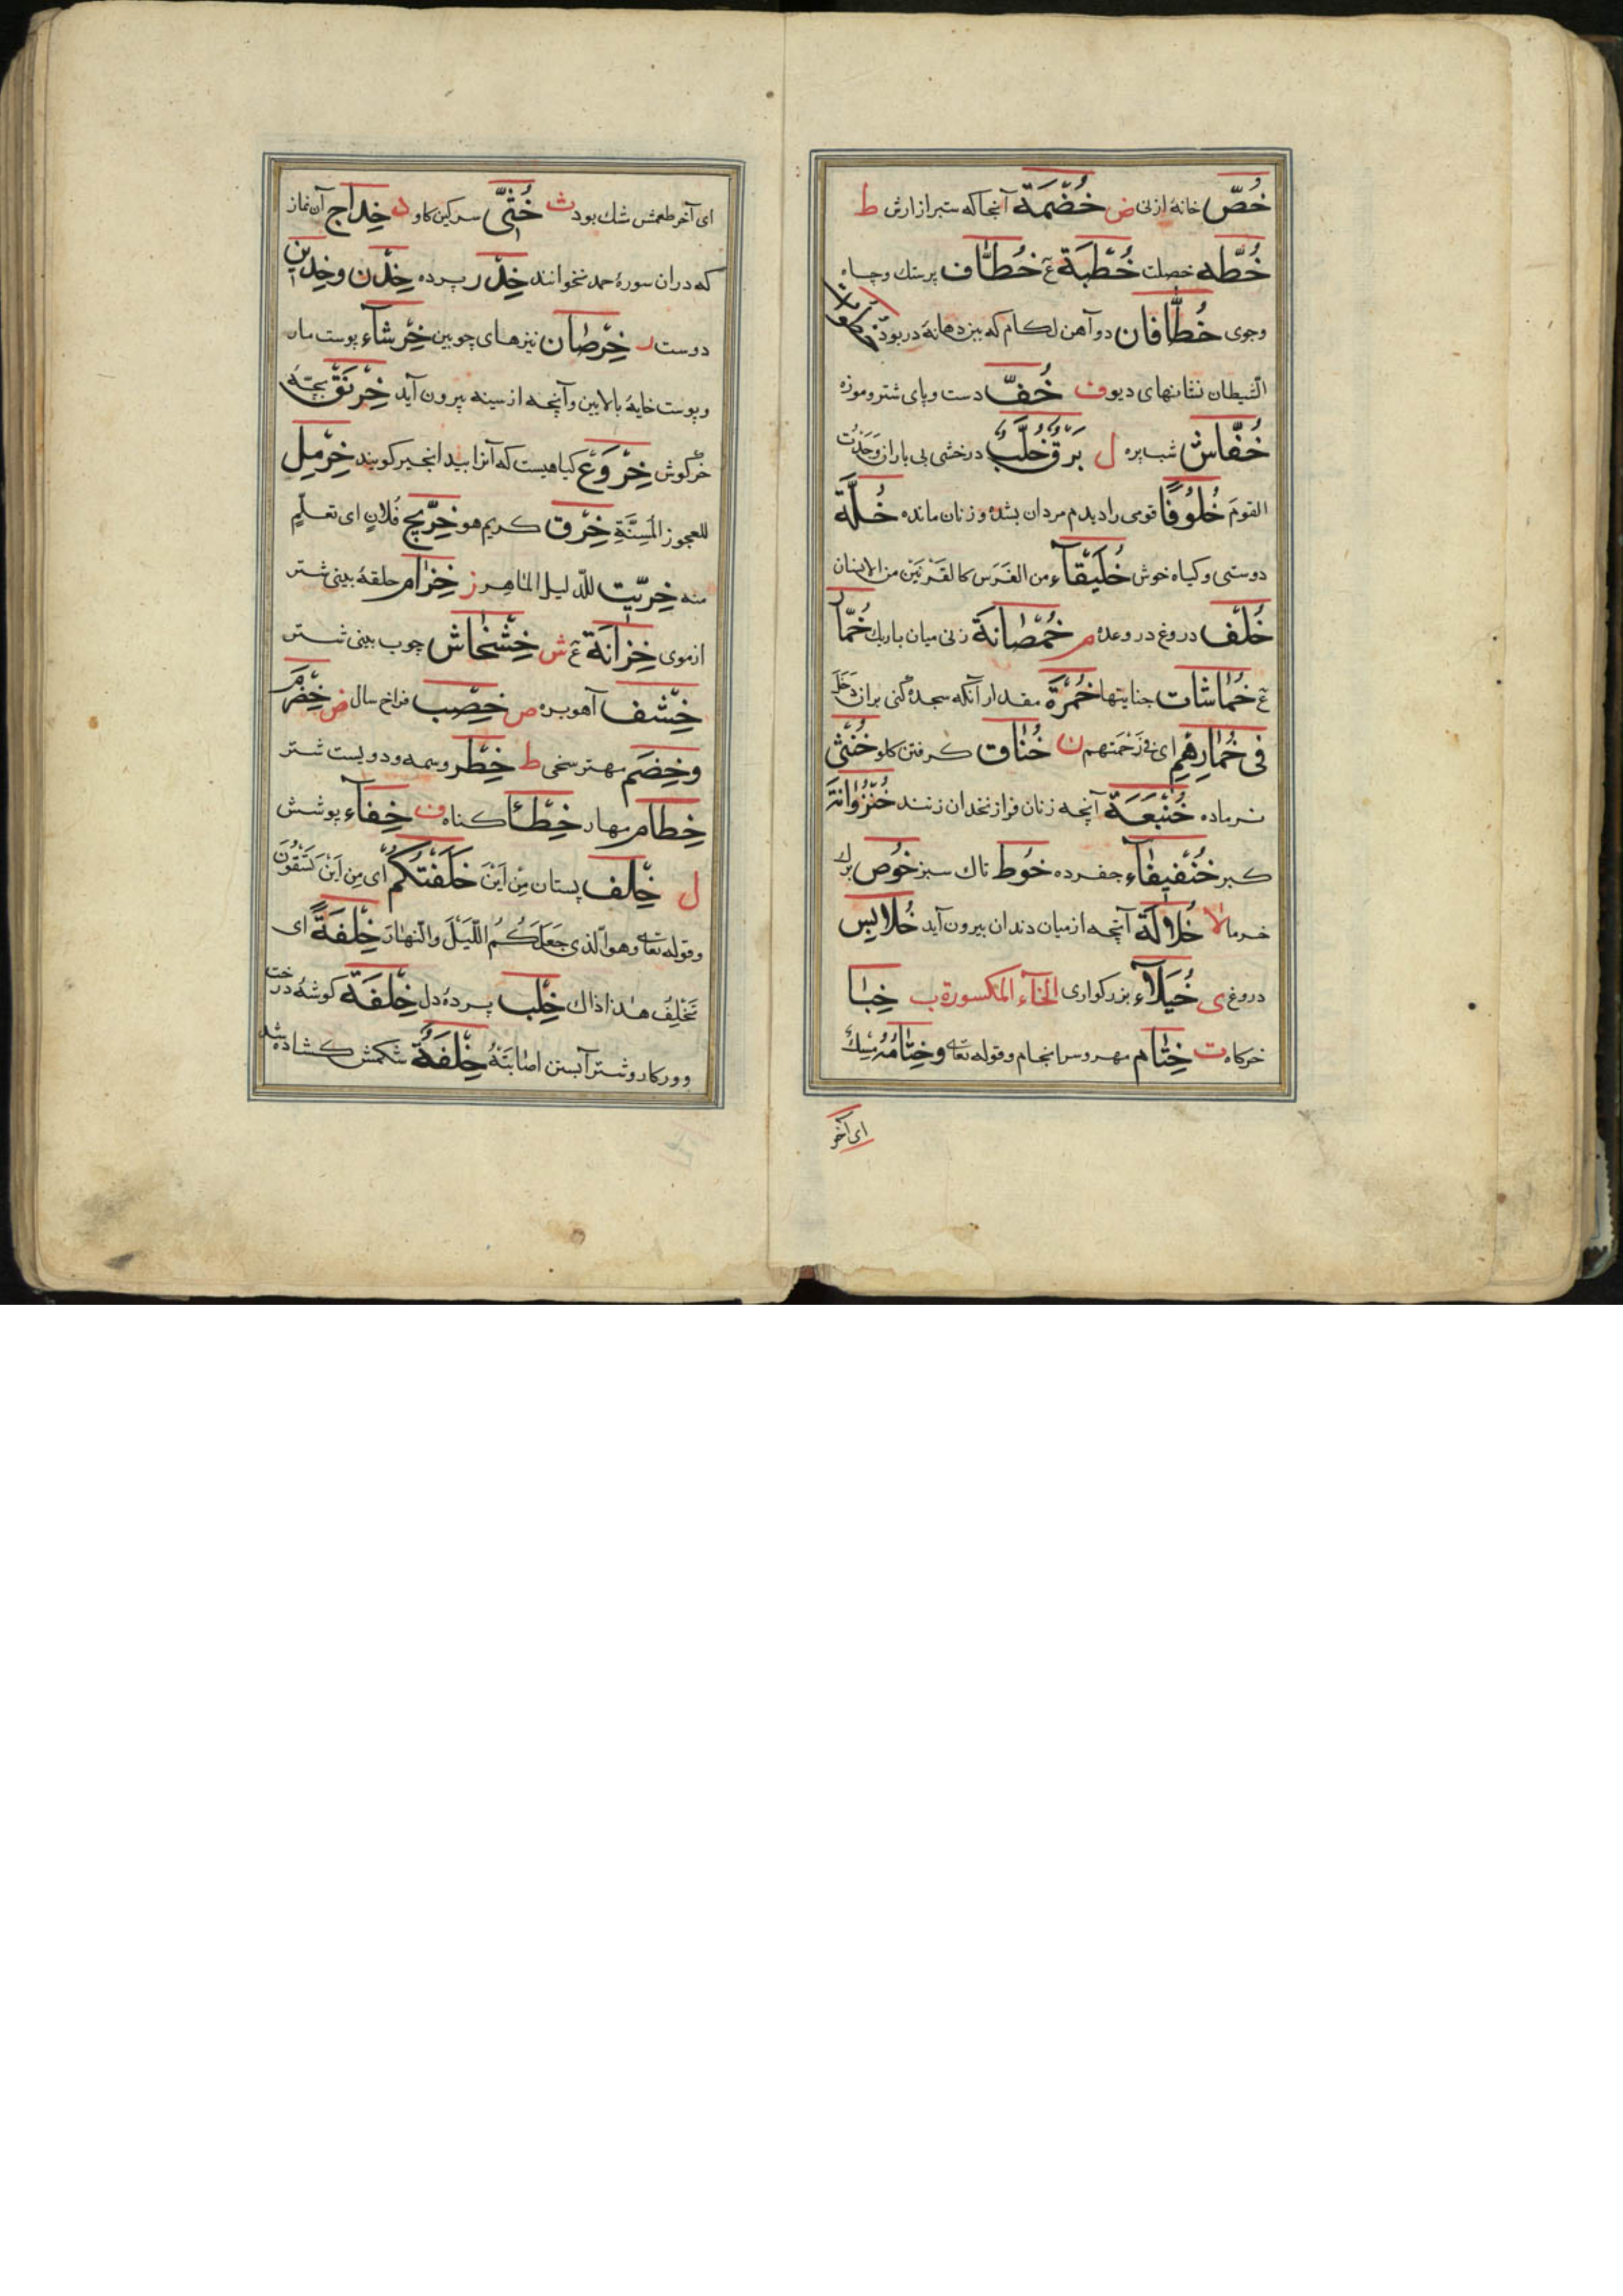 خُصّ خانهٔ از نی ض خُضُمَّة آنجا که ستبر از ارش ط
خُطّه خصلت خُطْبَة ع خُطَّاف پرستك وچاه
وجوی خُطَّافان دو آهن لکام که بیزدهانهٔ در بود خُطُوات
الشّیطان نشانهای دیو ف خُفّ دست وپای شتر وموزه
خُفّاش شب پره ل بَرْقٌ خُلَّبٌ درخشی بی باران وَجَدْتُ
القومَ خُلُوفًا قومی را دیدم مردان بشده و زنان مانده خُلَّة
دوستی وکیاه خوش خُلَیْقَآء من الفَرَس کالعَرْنَیْن من الانسان
خُلْف دروغ در وعده م خُمْصانَة زنی میان باریك خُمَّار
ع خُمَاشات جنایتها خُمْرَة مقدار آنکه سجده کنی بران دَخَلَ
فی خُمَارِهِم ای فی زَحْمَتهم ن خُنَاق کرفتن کلو خُنْثی
نرماده خُنْبُعَة آنچه زنان فرا زنخدان زنند خُنْزُوَانَة
کبر خُنْفِیفَآء جفرده خُوط تاك سبز خُوص برك
خرما لا خُلالَة آنچه از میان دندان بیرون آید خُلابِیس
دروغ ی خُیَلآء بزرکواری الخآء المکسورة ب خِبَا
خرکاه ت خِتَام مهر وسرانجام وقوله تعالی وخِتَامُهُ مِسْكٌ
ای آخر
ای آخر طعمش شك بود ث خُثّی سرکین کاو د خِدَاج آن نماز
که دران سورهٔ حمد نخوانند خِدْر پرده خِدْن وخَدِین
دوست ر خِرْصَان نیزهای چوبین خِرْشَآء پوست مار
وپوست خایهٔ بالایین وآنچه از سینه بیرون آید خِرْنَقْ بچّهٔ
خرکوش خِرْوَع کیاهیست که آنرا بید انجیر کویند خِرْمِل
للعجوز المُسِنَّةِ خِرْق کریم هو خِرِّیجُ فُلانٍ ای تعلّم
منه خِرّیت للدّلیل الماهر ز خِزَام حلقهٔ بینی شتر
از موی خِزَانَة ع ش خِشْخَاش چوب بینی شتر
خِشْف آهو بره ص خِصْب فراخ سال ض خِضْرِم
وخِضَم مهتر سخی ط خِطْر وسمه ودویست شتر
خِطَام مهار خِطْأ کناه ف خِفَآء پوشش
ل خِلْف پستان مِنْ اَیْنَ خَلَفْتُکُمْ ای مِن اَیْنَ تَسْتَقُونَ
وقوله تعالی وهو الّذی جَعَلَ لَکُمُ اللَّیْلَ والنَّهارَ خِلْفَةً ای
یَخْلِفُ هذا ذاك خِلْب پردهٔ دل خِلْفَة کوشهٔ درخت
وورکار وشتر آبستن اصابَتْهُ خِلْفَةٌ شکمش کشاده شد